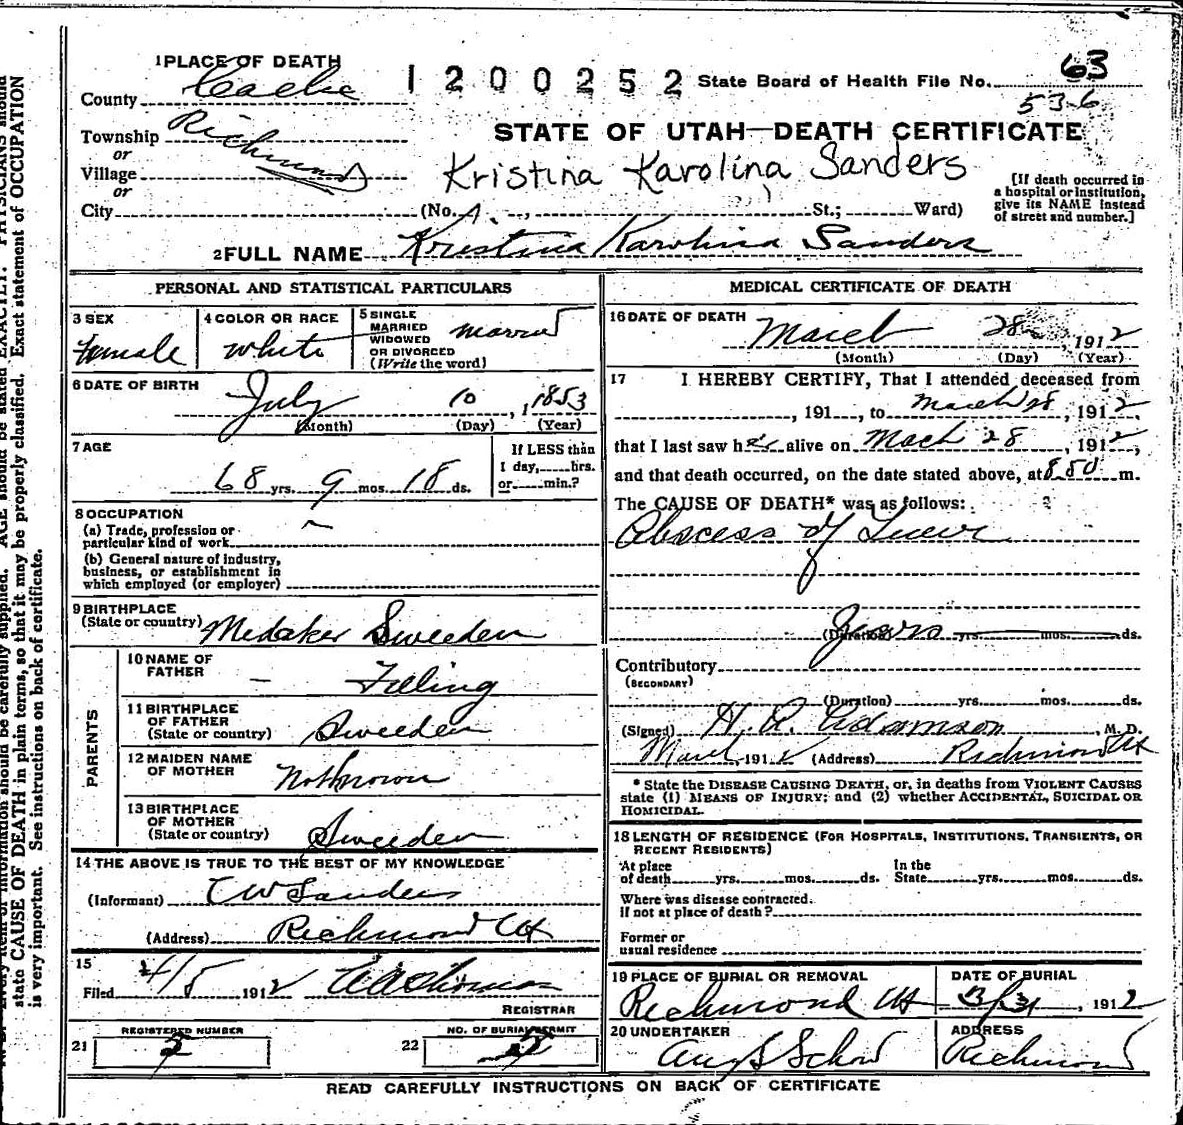 1 PLACE OF DEATH
1200252 State Board of Health File No. 63
County Cache
536
Township Richmond
or
STATE OF UTAH—DEATH CERTIFICATE
Village
or
Kristina Karolina Sanders
[If death occurred in
a hospital or institution,
give its NAME instead
of street and number.]
City (No. , St.; Ward)
2 FULL NAME Kristina Karolina Sanders
PERSONAL AND STATISTICAL PARTICULARS
3 SEX
Female
4 COLOR OR RACE
White
5 SINGLE
MARRIED
WIDOWED
OR DIVORCED
(Write the word)
Married
6 DATE OF BIRTH
July 10, 1853
(Month) (Day) (Year)
7 AGE
68 yrs. 9 mos. 18 ds.
If LESS than
1 day, hrs.
or min.?
8 OCCUPATION
(a) Trade, profession or
particular kind of work
(b) General nature of industry,
business, or establishment in
which employed (or employer)
9 BIRTHPLACE
(State or country) Medaker Sweeden
PARENTS
10 NAME OF
FATHER
— Filling
11 BIRTHPLACE
OF FATHER
(State or country) Sweeden
12 MAIDEN NAME
OF MOTHER
Not known
13 BIRTHPLACE
OF MOTHER
(State or country) Sweeden
14 THE ABOVE IS TRUE TO THE BEST OF MY KNOWLEDGE
(Informant) C W Sanders
(Address) Richmond Ut
15
Filed 4/5 1912 Thomas
REGISTRAR
REGISTERED NUMBER
21 5
NO. OF BURIAL PERMIT
22 5
MEDICAL CERTIFICATE OF DEATH
16 DATE OF DEATH
March 28, 1912
(Month) (Day) (Year)
17 I HEREBY CERTIFY, That I attended deceased from
, 191 , to March 28, 1912,
that I last saw her alive on Mach 28, 1912,
and that death occurred, on the date stated above, at 8.50 m.
The CAUSE OF DEATH* was as follows:
Abscess of Liver
(Duration) Years yrs. mos. ds.
Contributory
(SECONDARY)
(Duration) yrs. mos. ds.
(Signed) H. R. Adamson, M. D.
March 1912 (Address) Richmond Ut
* State the DISEASE CAUSING DEATH, or, in deaths from VIOLENT CAUSES
state (1) MEANS OF INJURY; and (2) whether ACCIDENTAL, SUICIDAL OR
HOMICIDAL.
18 LENGTH OF RESIDENCE (FOR HOSPITALS, INSTITUTIONS, TRANSIENTS, OR
RECENT RESIDENTS)
At place
of death yrs. mos. ds.
In the
State yrs. mos. ds.
Where was disease contracted.
If not at place of death?
Former or
usual residence
19 PLACE OF BURIAL OR REMOVAL
Richmond Ut
DATE OF BURIAL
3/31, 1912
20 UNDERTAKER
Aug S Schow
ADDRESS
Richmond
READ CAREFULLY INSTRUCTIONS ON BACK OF CERTIFICATE
information should be carefully supplied. AGE should be stated EXACTLY. PHYSICIANS should
state CAUSE OF DEATH in plain terms, so that it may be properly classified. Exact statement of OCCUPATION
is very important. See instructions on back of certificate.